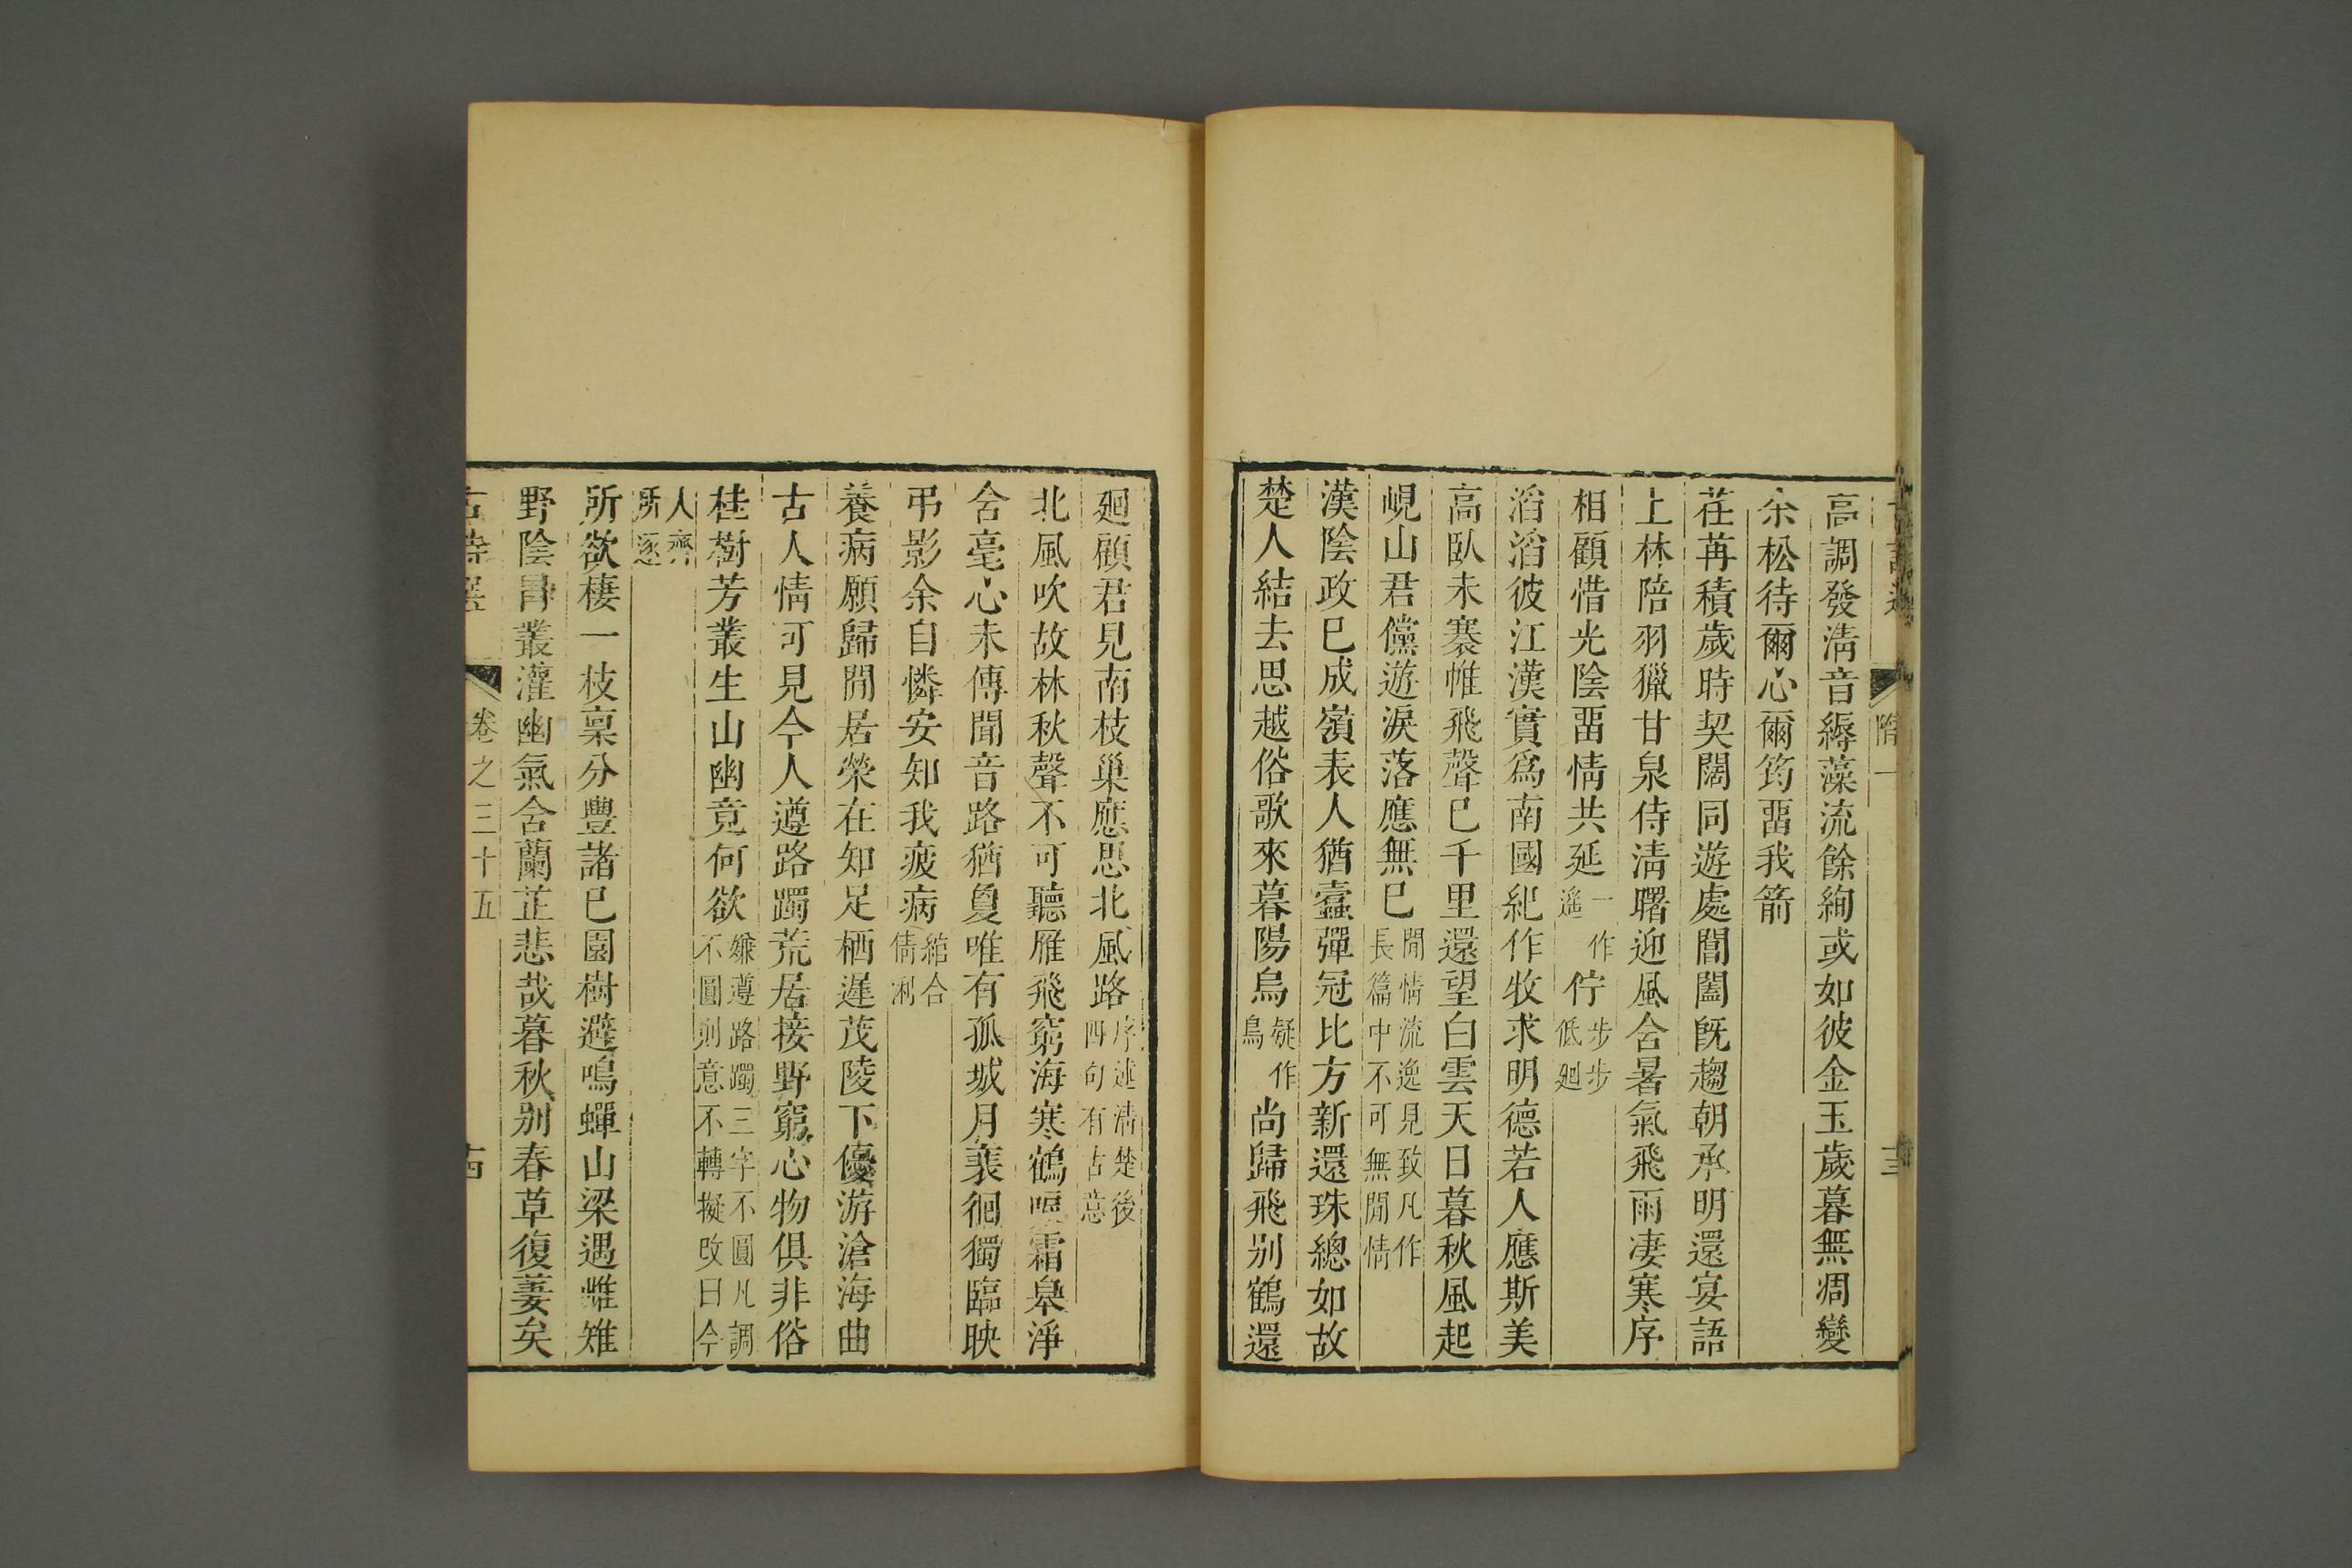 隋一
高調發淸音縟藻流餘絢或如彼金玉歲暮無凋變
余松待爾心爾筠畱我箭
荏苒積歲時契闊同遊處閶闔旣趨朝承明還宴語
上林陪羽獵甘泉侍淸曙迎風含暑氣飛雨凄寒序
相顧惜光陰畱情共延一作遥佇步步低廻
滔滔彼江漢實爲南國紀作牧求明德若人應斯美
高臥未褰帷飛聲已千里還望白雲天日暮秋風起
峴山君儻遊淚落應無已閒情流逸見致凡作長篇中不可無閒情
漢陰政已成嶺表人猶蠹彈冠比方新還珠總如故
楚人結去思越俗歌來暮陽烏疑作鳥尚歸飛别鶴還
廻顧君見南枝巢應思北風路序述淸楚後四句有古意
北風吹故林秋聲不可聽雁飛窮海寒鶴唳霜皋淨
含毫心未傳聞音路猶敻唯有孤城月裴徊獨臨映
弔影余自憐安知我疲病綰合倩利
養病願歸閒居榮在知足栖遲茂陵下優游滄海曲
古人情可見今人遵路躅荒居接野窮心物俱非俗
桂樹芳叢生山幽竟何欲嫌遵路躅三字不圓凡調不圓則意不轉擬改曰今
人齊所逐
所欲棲一枝稟分豐諸已園樹避鳴蟬山梁遇雌雉
野陰冐叢灌幽氣含蘭芷悲哉暮秋别春草復萋矣
古詩選 卷之三十五 十四